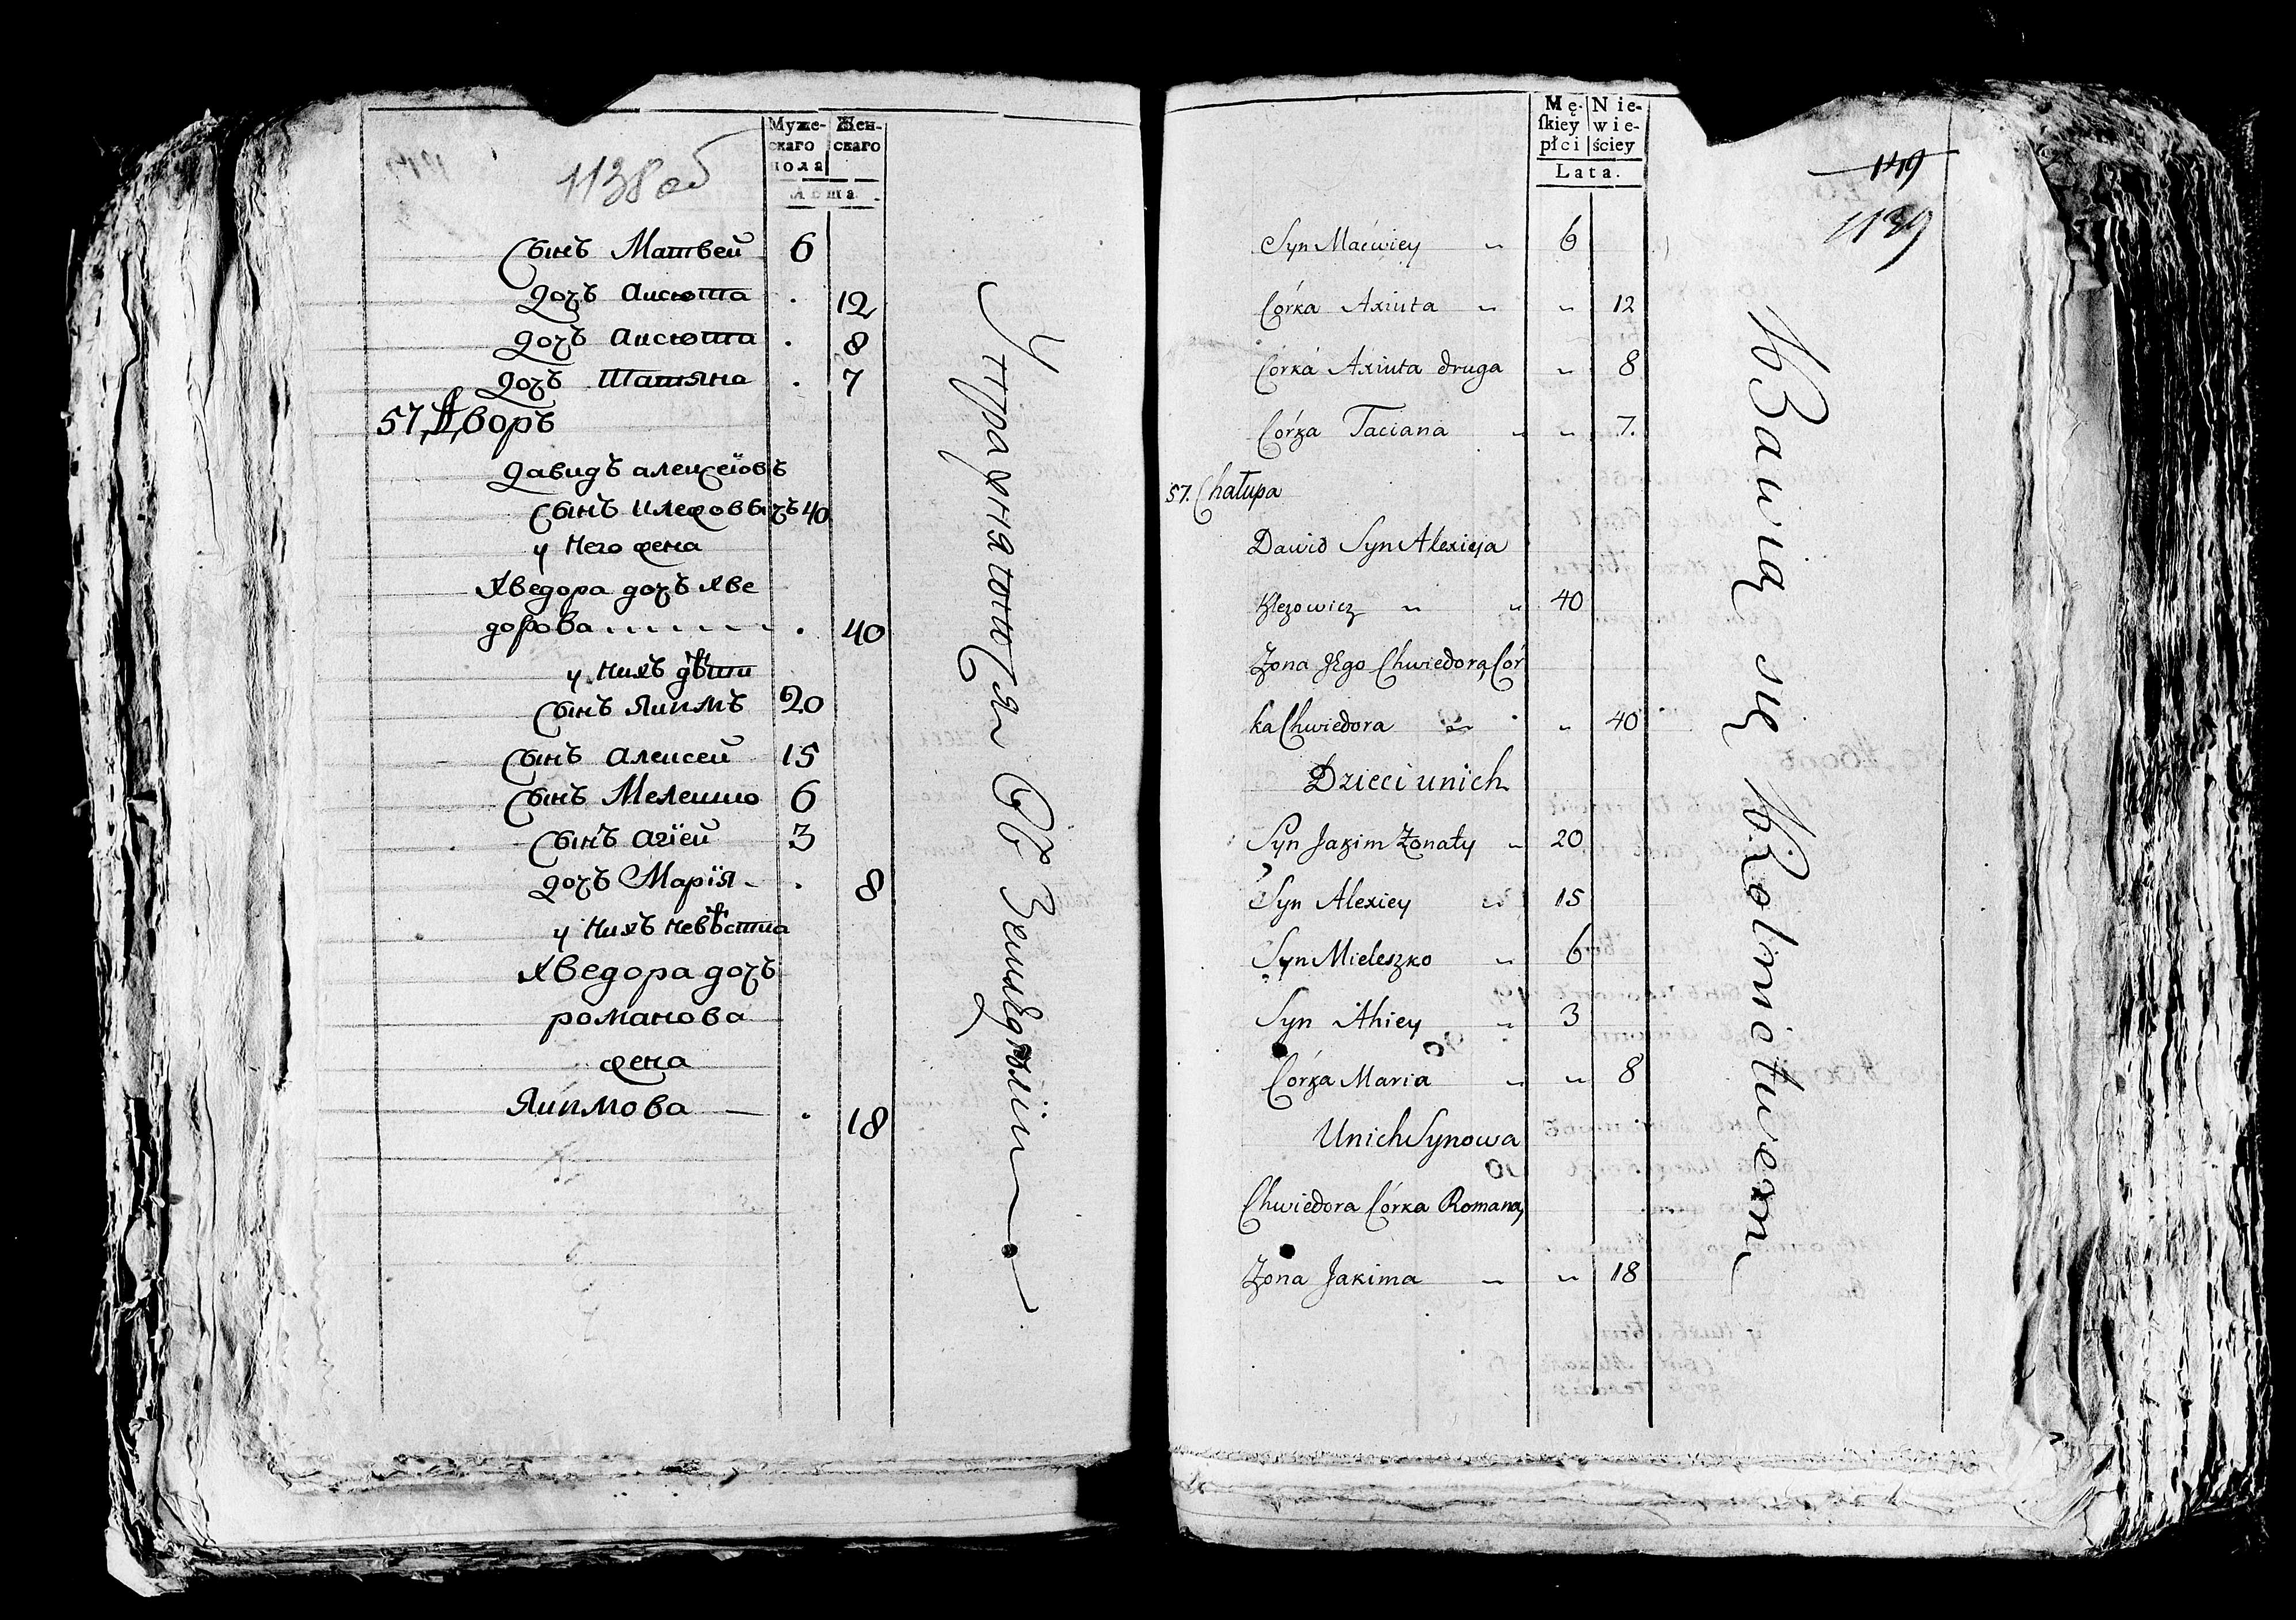 Муже-
скаго
пола
Жен-
скаго
Лѣта
1138 об
Сынъ Матвей 6
Дочъ Аксюта . 12
Дочъ Аксюта . 8
Дочъ Татяна . 7
57, Дворъ
Давидъ алексѣовъ
Сынъ клезовычъ 40
у него жена
Хведора дочъ хве
дорова . . . . . . . . 40
у нихъ дѣти
Сынъ Якимъ 20
Сынъ Алексей 15
Сынъ Мелешко 6
Сынъ Агїей 3
дочъ Марїя . 8
у нихъ невѣстка
Хведора дочъ
романова
жена
Якимова — . 18
Упражняютця въ Земледѣлїи
Mę-
ſkiey
płci
Nie-
wie-
ściey
Lata.
149
1139
Syn Maćwiey „ 6
Córka Axiuta „ „ 12
Córka Axiuta druga „ 8
Córka Taciana „ „ 7.
57. Chałupa
Dawid Syn Alexieja
Klezowicz „ „ 40
Żona Jego Chwiedora, Cór
ka Chwiedora „ „ 40
Dzieci u nich
Syn Jakim Żonaty „ 20
Syn Alexiey „ 15
Syn Mieleszko „ 6
Syn Ahiey „ 3
Córka Maria „ „ 8
U nich Synowa
Chwiedora Córka Romana,
Żona Jakima „ „ 18
Bawią się Rolnictwem